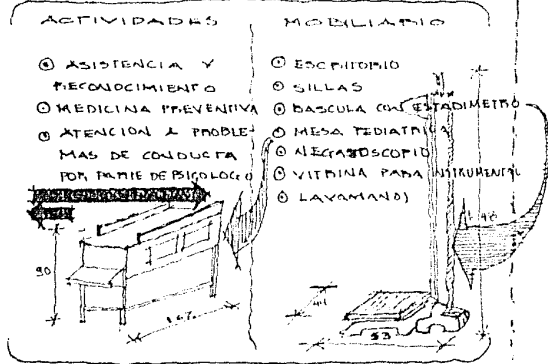 ACTIVIDADES
ASISTENCIA Y
RECONOCIMIENTO
MEDICINA PREVENTIVA
ATENCION A PROBLE-
MAS DE CONDUCTA
POR PARTE DE PSICOLOGO
90
MOBILIARIO
ESCRITORIO
SILLAS
BASCULA CON ESTADIMETRO
MESA PEDIATRICA
NEGATOSCOPIO
VITRINA PARA INSTRUMENTAL
LAVAMANOS
53